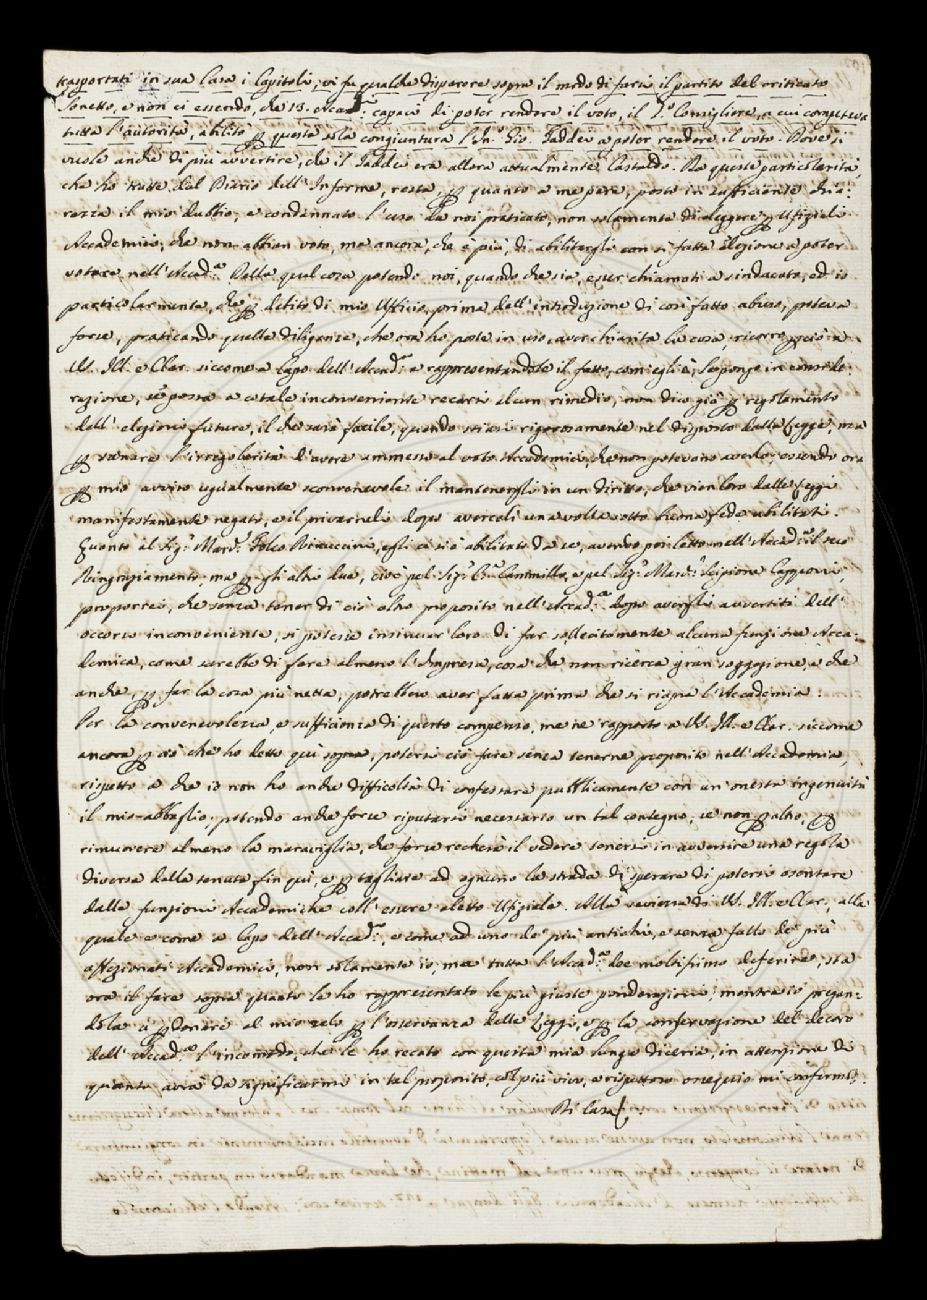 trasportati in sua Casa i Capitoli, vi fu qualche disparere sopra il modo di farsi il partito del criticato
Sonetto, e non ci essendo, che 13. Accad.ci capaci di poter rendere il voto, il P.o Consigliere, a cui competeva
tutta l'autorità, abilitò p questa sola congiuntura l'In. Gio. Taddei a poter rendere il voto. Dove si
vuole anche di più avvertire, che il Taddei era allora attualmente Castaldo. Da queste particolarità,
che ho tratte dal Diario dell'Informe, resta, p quanto a me pare, posto in sufficiente chia=
rezza il mio dubbio, e condannato l'uso da noi praticato, non solamente di eleggere p Ufiziali
Accademici, che non abbian voto, ma ancora, che è più, di abilitargli con sì fatta elezione a poter
votare nell'Accad.a Dalla qual cosa potendo noi, quando che sia, esser chiamati a sindacato, ed io
particolarmente, che p debito di mio Ufizio, prima dell'introduzione di così fatto abuso, poteva
forse, praticando quelle diligenze, che ora ho poste in uso, aver chiarita la cosa, ricorro p ciò a
V.S. Ill. e Clar. siccome a Capo dell'Accad.a e rappresentandole il fatto, com'egli è, le pongo in conside=
razione, se possa a cotale inconveniente recarsi alcun rimedio, non dico già p regolamento
dell'elezioni future, il che sarà facile, quando stiasi rigorosamente nel disposto della Legge, ma
p sanare l'irregolarità d'avere ammessi al voto Accademici, che non potevano averlo, essendo ora
p mio avviso ugualmente sconvenevole il mantenergli in un diritto, che vien loro dalla Legge
manifestamente negato, e il privarneli dopo averceli una volta sotto buona fede abilitati.
Quanto al Sig.r March. Folco Rinuccini, egli ci si è abilitato da se, avendo poi letto nell'Accad.a il suo
Ringraziamento; ma p gli altri due, cioè pel Sig.r Cammillo, e pel Sig.r March. Scipione Capponi,
proporrei, che senza tener di ciò altro proposito nell'Accad.a dopo avergli avvertiti dell'
occorso inconveniente, si potesse insinuar loro di far sollecitamente alcuna funzione Acca=
demica, come sarebbe di fare almeno l'Impresa, cosa che non ricerca gran soggezione, e che
anche, p far la cosa più netta, potrebbero aver fatta prima che si riapra l'Accademia.
Per la convenevolezza, e sufficienza di questo compenso, me ne rapporto a V.S. Ill. e Clar. siccome
ancora p ciò che ho detto qui sopra, potersi ciò fare senza tenerne proposito nell'Accademia,
rispetto a che io non ho anche difficoltà di confessare pubblicamente con un'onesta ingenuità
il mio abbaglio; potendo anche forse riputarsi necessario un tal contegno, se non p altro, p
rimuovere almeno la maraviglia, che forse recherà il vedere tenersi in avvenire una regola
diversa dalla tenuta fin quì, e p tagliare ad ognuno la strada di sperare di potersi esentare
dalle funzioni Accademiche coll'essere eletto Ufiziale. Alla saviezza di V.S. Ill. e Clar., alla
quale e come a Capo dell'Accad.a, e come ad uno de' più antichi, e senza fallo de' più
affezionati Accademici, non solamente io, ma tutta l'Accad.a dee moltissimo deferire, sta
ora il fare sopra quanto le ho rappresentato le più giuste ponderazioni; mentre io pregan=
dola a p donare al mio zelo p l'osservanza delle Leggi, e p la conservazione del decoro
dell'Accad.a l'incomodo, che le ho recato con questa mia lunga diceria, in attenzione di
quanto avrà da significarmi in tal proposito, col più vivo, e rispettoso ossequio mi confermo.
Di Casa